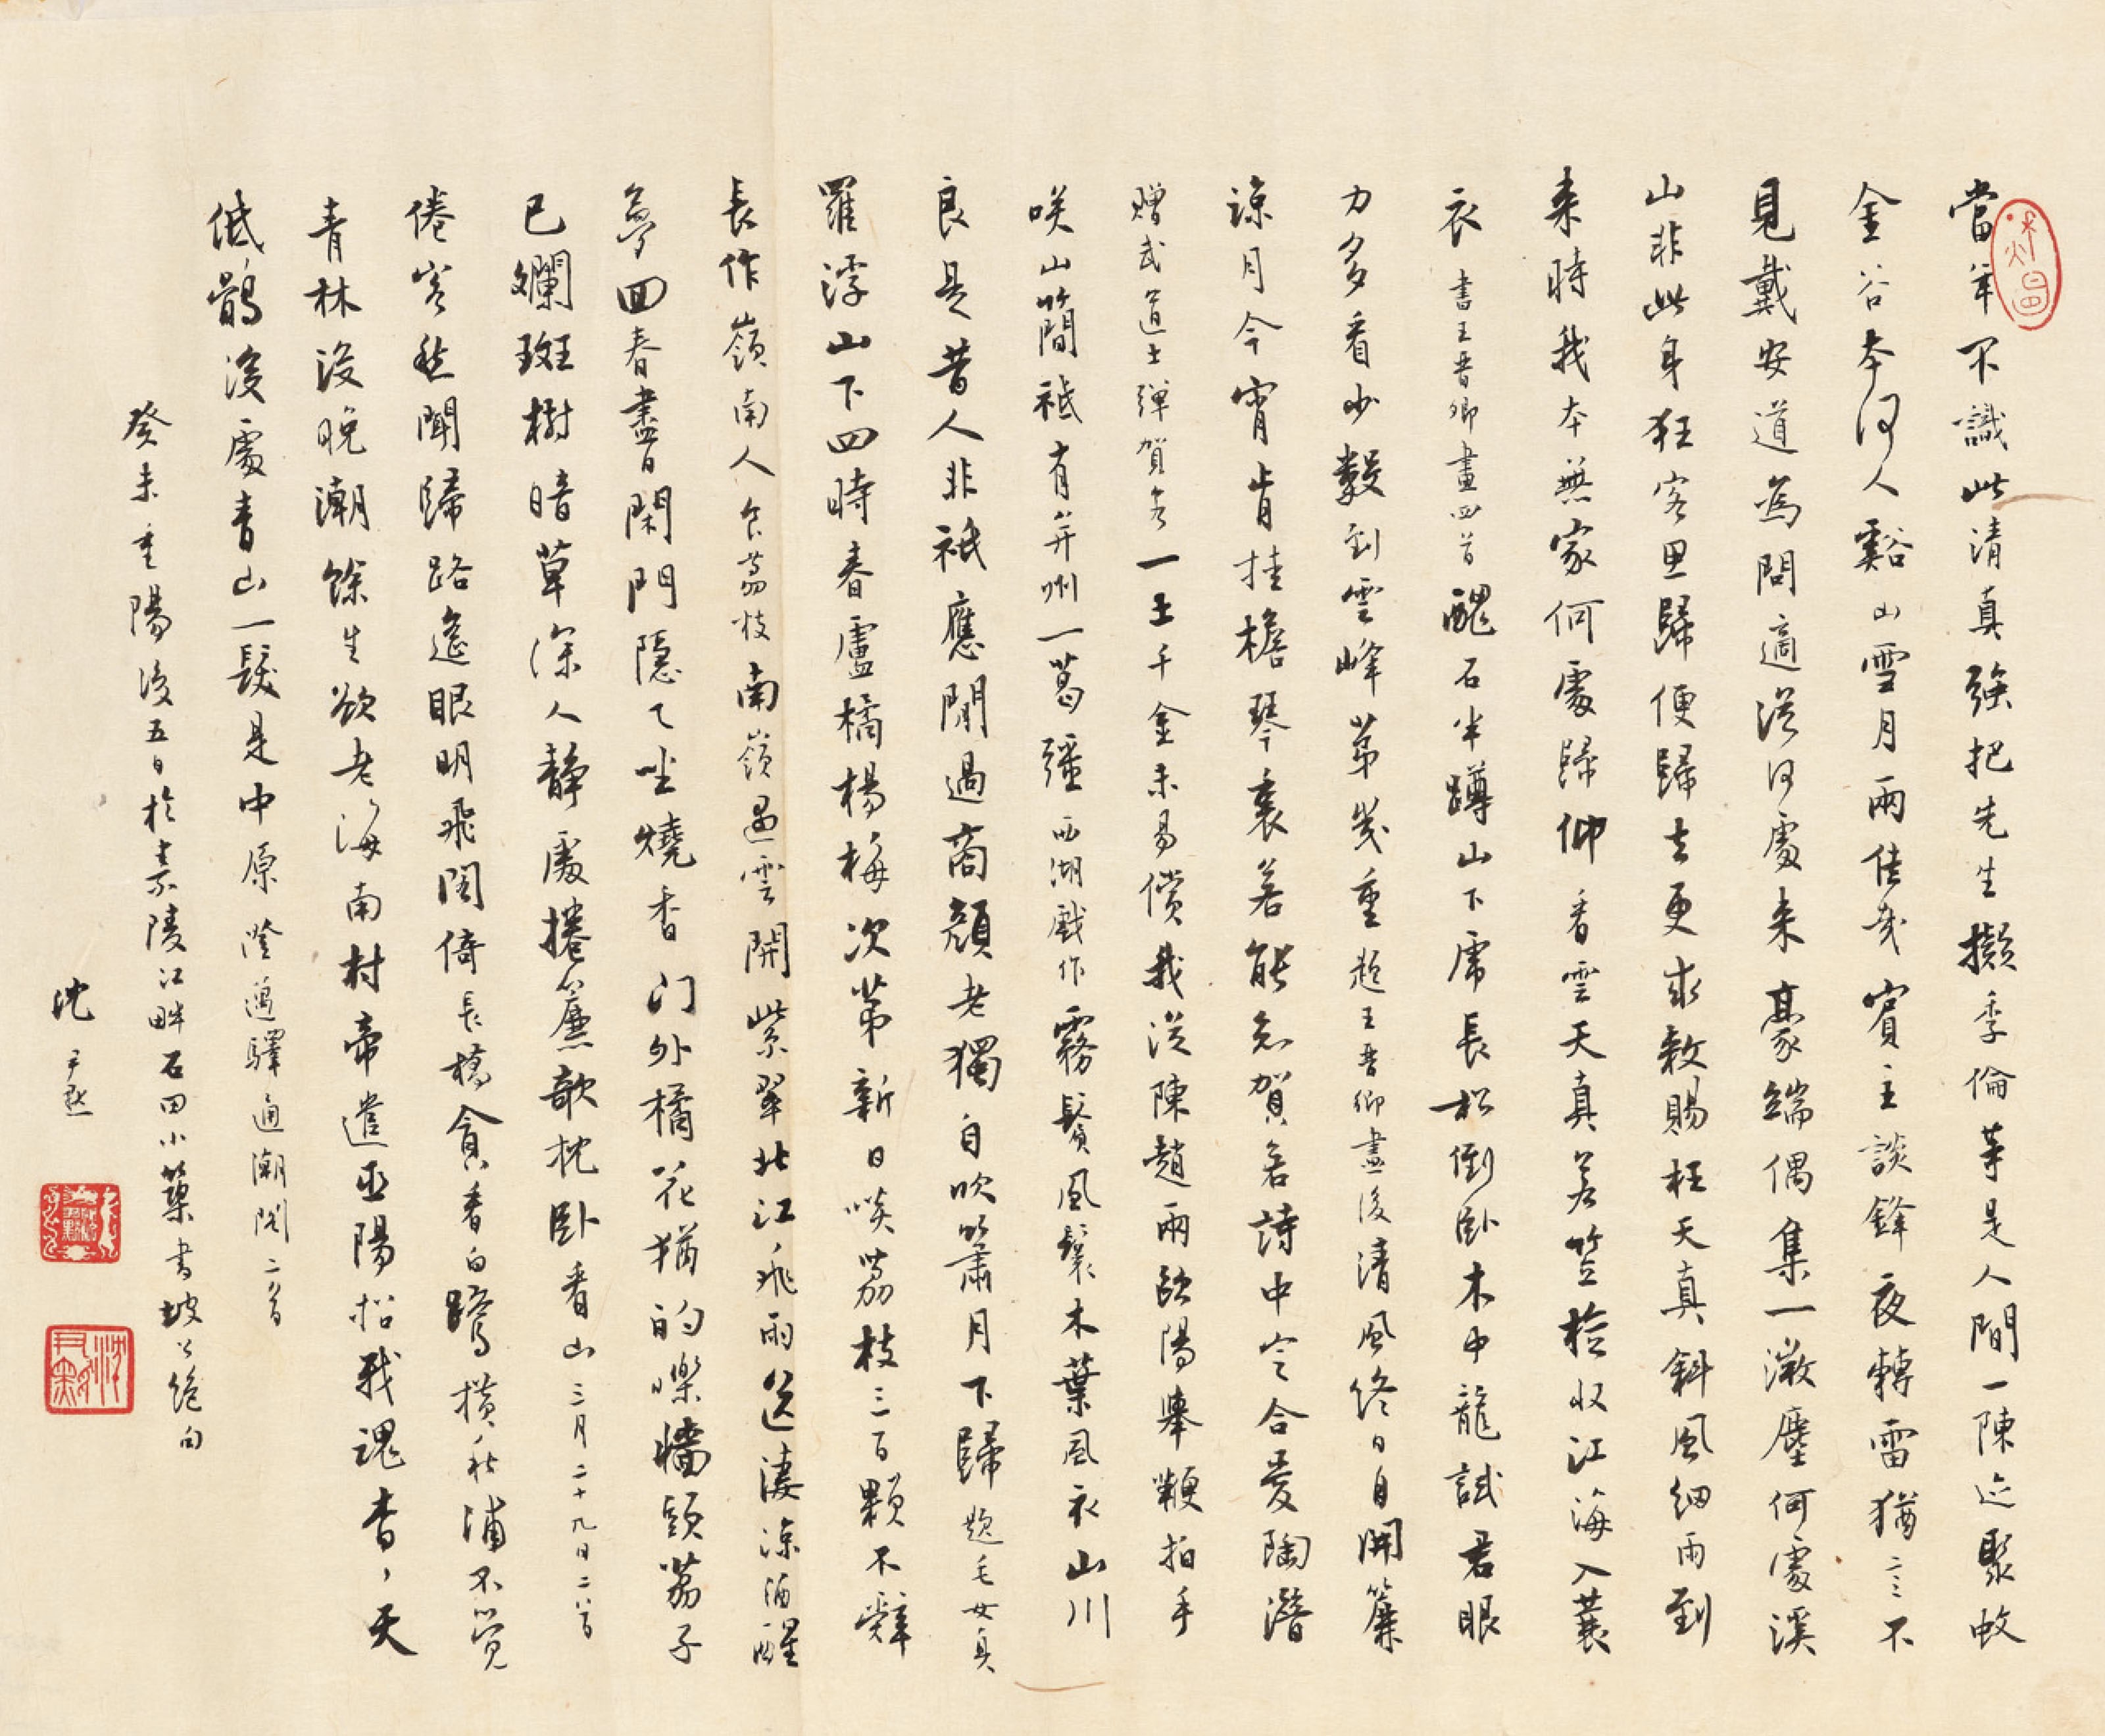 當年不識此清真強把先生擬季倫等是人間一陳迹聚蚊
金谷本何人谿山雪月兩佳哉賓主談鋒夜轉雷猶言不
見戴安道為問適從何處來豪端偶集一微塵何處溪
山非此身狂客思歸便歸去更求敕賜枉天真斜風細雨到
來時我本無家何處歸仰看雲天真箬笠捡收江海入蓑
衣書王晉卿畫四首醜石半蹲山下虎長松倒臥木中龍試君眼
力多看少數到雲峰第幾重題王晉卿畫後清風終日自開簾
涼月今宵肯挂檐琴裏若能知賀若詩中定合愛陶潛
贈武道士彈賀若一士千金未易償我從陳趙兩歐陽舉鞭拍手
咲山簡祇有并州一葛彊西湖戲作霧鬢風鬟木葉衣山川
良是昔人非祇應閒過商顏老獨自吹簫月下歸題毛女真
羅浮山下四時春盧橘楊梅次第新日啖荔枝三百顆不辭
長作嶺南人食荔枝南嶺過雲開紫翠北江飛雨送淒涼酒醒
夢回春盡日閑門隱〻坐燒香门外橘花猶的皪牆頭荔子
已斕斑樹暗草深人靜處捲簾欹枕臥看山三月二十九日二首
倦客愁聞歸路遙眼明飛閣倚長橋貪看白鷺橫秋浦不覺
青林沒晚潮餘生欲老海南村帝遣巫陽招我魂杳〻天
低鶻沒處青山一髮是中原澄邁驛通潮閣二首
癸未重陽後五日於嘉陵江畔石田小築書坡公絕句
沈尹默